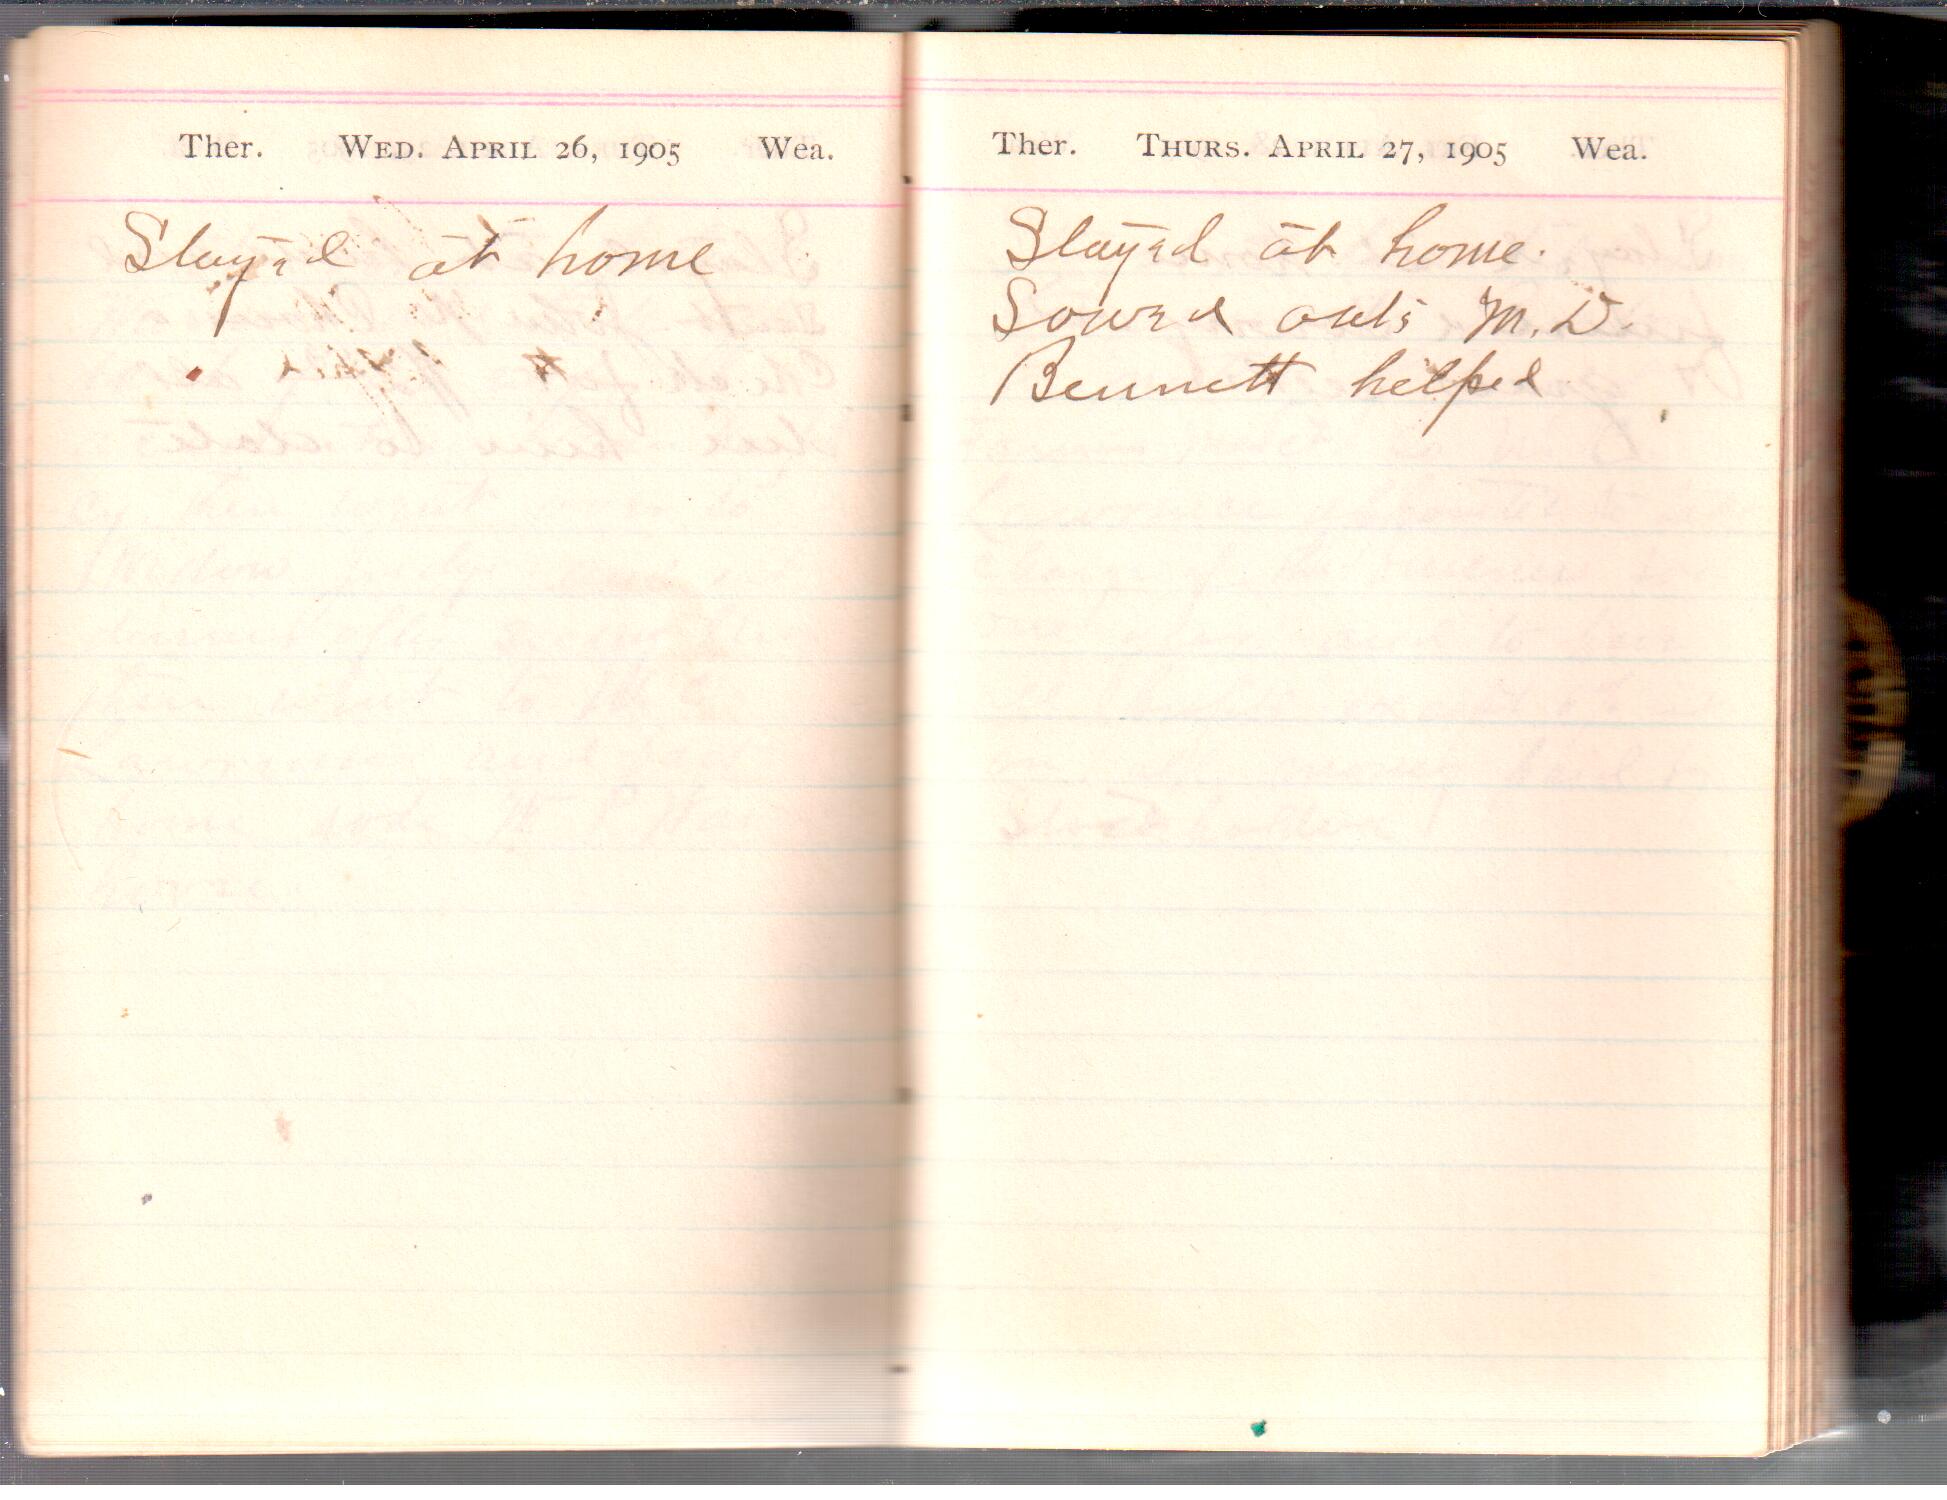 Ther. WED. APRIL 26, 1905 Wea.
Stayed at home
Ther. THURS. APRIL 27, 1905 Wea.
Stayed at home.
Sowed oats M. D.
Bennett helped